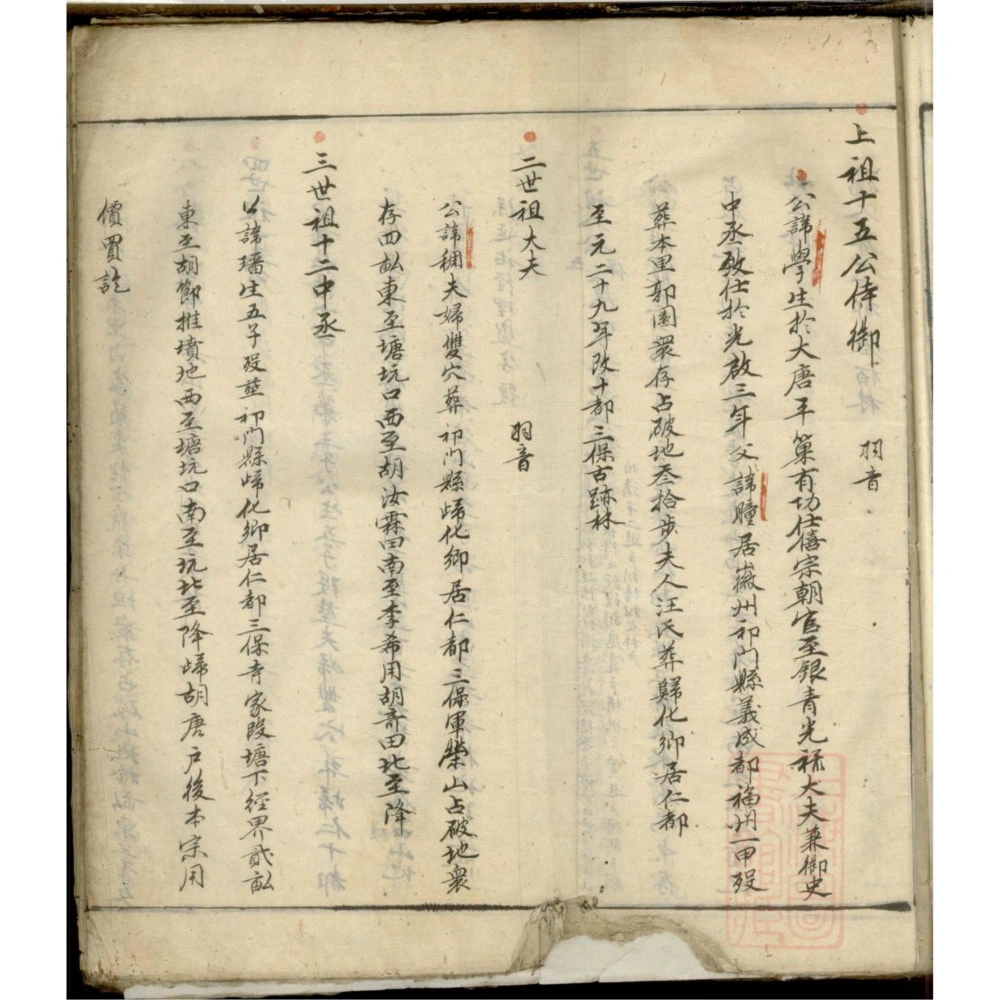 上祖十五公侍御 羽音
公諱學生於大唐平巢有功仕僖宗朝官至銀青光祿大夫兼御史
中丞致仕於光啟三年父諱瞳居徽州祁門縣義成都福州一甲歿
葬本里郭園衆存占破地叁拾步夫人汪氏葬歸化鄉居仁都
至元二十九年改十都三保古跡林
二世祖大夫 羽音
公諱稠夫婦雙穴葬祁門縣歸化鄉居仁都三保軍榮山占破地衆
存四畝東至塘坑口西至胡汝霖田南至李希用胡奇田北至降
三世祖十二中丞
公諱璠生五子歿葬祁門縣歸化鄉居仁都三保寺家段塘下經界貳畝
東至胡節推墳地西至塘坑口南至坑北至降歸胡唐戶後本宗用
價買訖